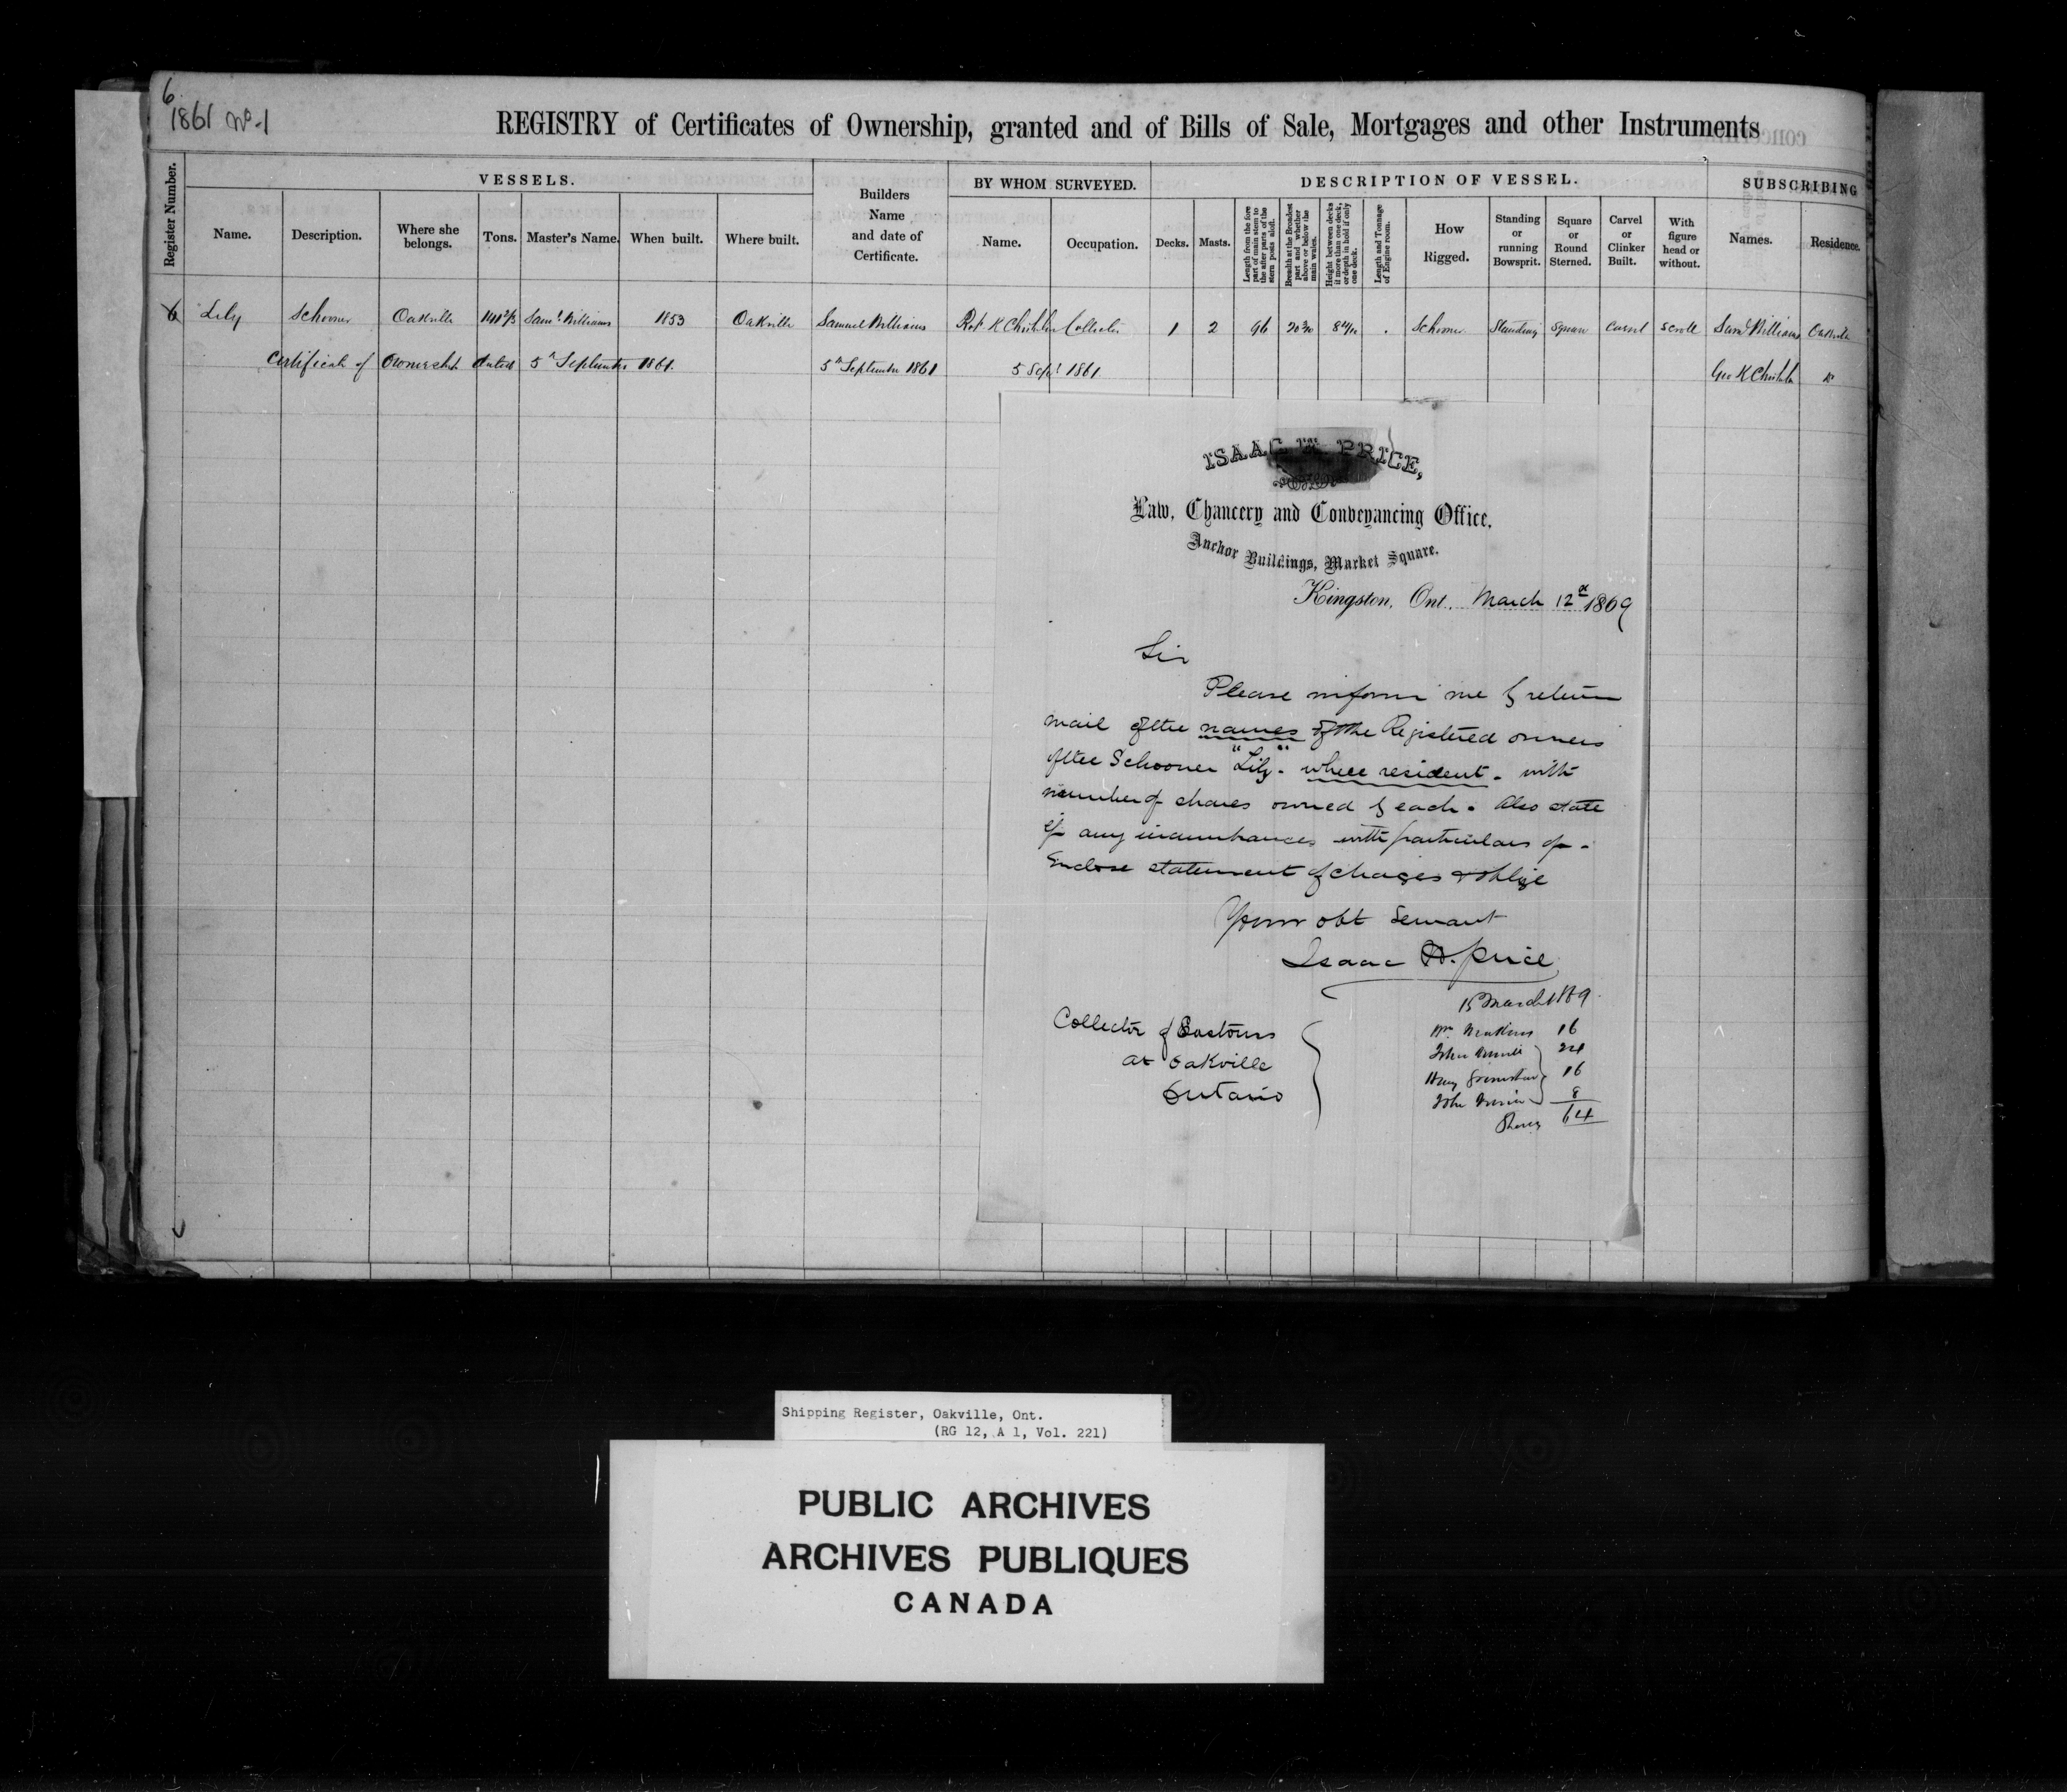 6
1861 No. 1
REGISTRY of Certificates of Ownership, granted and of Bills of Sale, Mortgages and other Instruments
Register Number.
VESSELS.
Name.
Description.
Where she belongs.
Tons.
Master's Name.
When built.
Where built.
Builders Name and date of Certificate.
BY WHOM SURVEYED.
Name.
Occupation.
DESCRIPTION OF VESSEL.
Decks.
Masts.
Length from the fore part of main stem to the after parts of the stern posts aloft.
Breadth at the Broadest part and whether above or below the main wales.
Height between decks if more than one deck, or depth in hold if only one deck.
Length and Tonnage of Engine room.
How Rigged.
Standing or running Bowsprit.
Square or Round Sterned.
Carvel or Clinker Built.
With figure head or without.
SUBSCRIBING
Names.
Residence.
6 Lily Schooner Oakville Saml Williams 1853 Oakville Samuel Williams Robt K Chisholm Collector 1 2 96 Schooner Standing Square Carvel Scroll Saml Williams Oakville
Certificate of Ownership dated 5th September 1861. 5th September 1861 5 Sept 1861 Geo K Chisholm Do
ISAAC PRICE,
Law, Chancery and Conveyancing Office,
Anchor Buildings, Market Square.
Kingston, Ont. March 12th 1869
Sir
Please inform me by return
mail of the names of the Registered owners
of the Schooner "Lily". where resident. with
number of shares owned by each. Also state
if any incumbrances with particulars of.
Enclose statement of charges & oblige
Your obt Servant
Isaac Price
Collector of Customs
at Oakville
Ontario
15 March 1869.
Wm 16
John 24
16
John 8
Shares 64
Shipping Register, Oakville, Ont.
(RG 12, A 1, Vol. 221)
PUBLIC ARCHIVES
ARCHIVES PUBLIQUES
CANADA